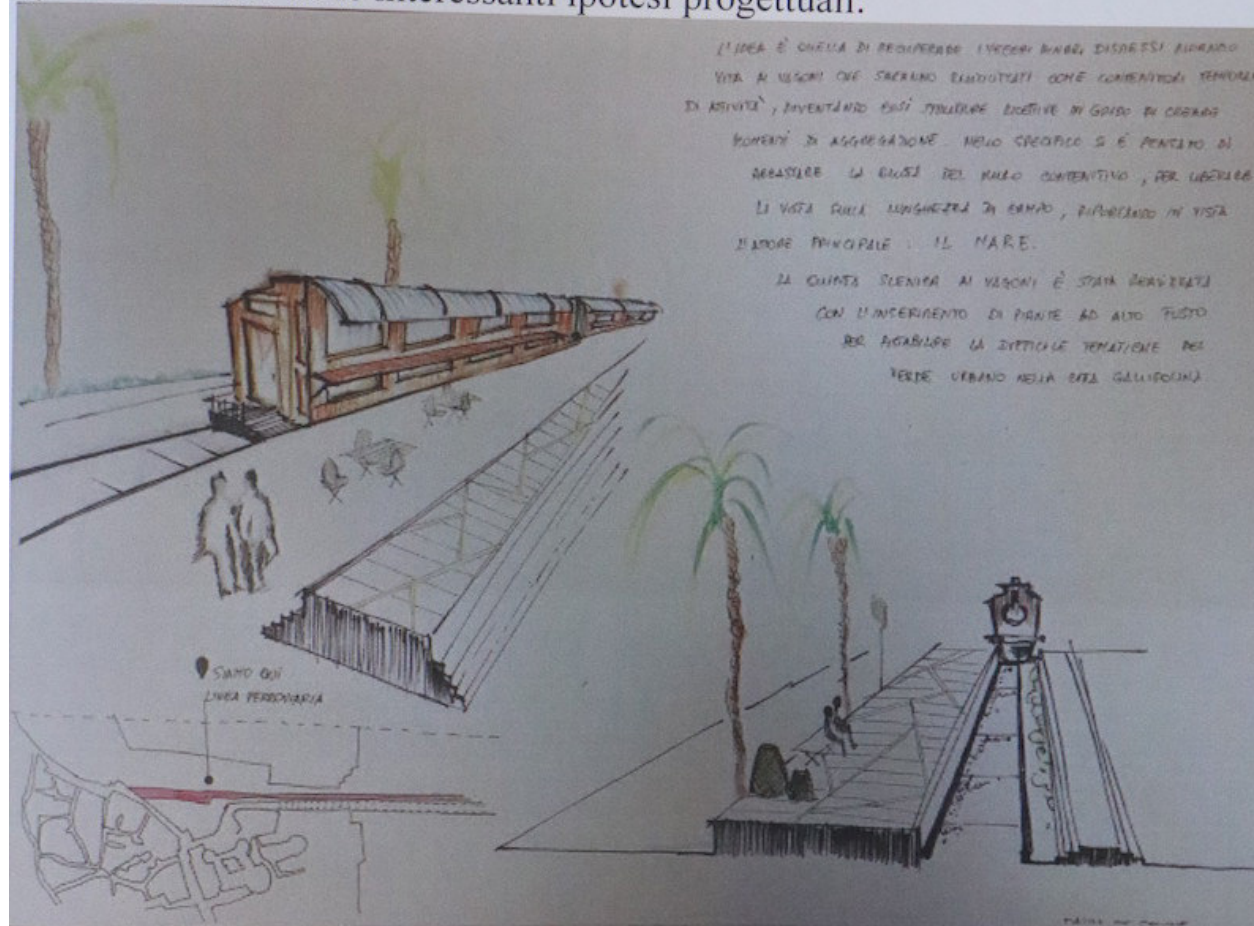 interessanti ipotesi progettuali.
L'IDEA È QUELLA DI RECUPERARE I VECCHI BINARI DISMESSI RIDANDO
VITA AI VAGONI CHE SARANNO RIUTILIZZATI COME CONTENITORI
DI ATTIVITÀ, DIVENTANDO COSÌ STRUTTURE RICETTIVE IN GRADO DI CREARE
MOMENTI DI AGGREGAZIONE. NELLO SPECIFICO SI È PENSATO DI
ABBASSARE LA QUOTA DEL MURO CONTENITIVO, PER LIBERARE
LA VISTA SULLA LUNGHEZZA DI CAMPO, RIPORTANDO IN VISTA
L'ATTORE PRINCIPALE: IL MARE.
LA QUINTA SCENICA AI VAGONI È STATA REALIZZATA
CON L'INSERIMENTO DI PIANTE AD ALTO FUSTO
PER LA DIFFICILE DEL
VERDE URBANO NELLA GALLIPOLINA
SIAMO QUÌ
LINEA FERROVIARIA